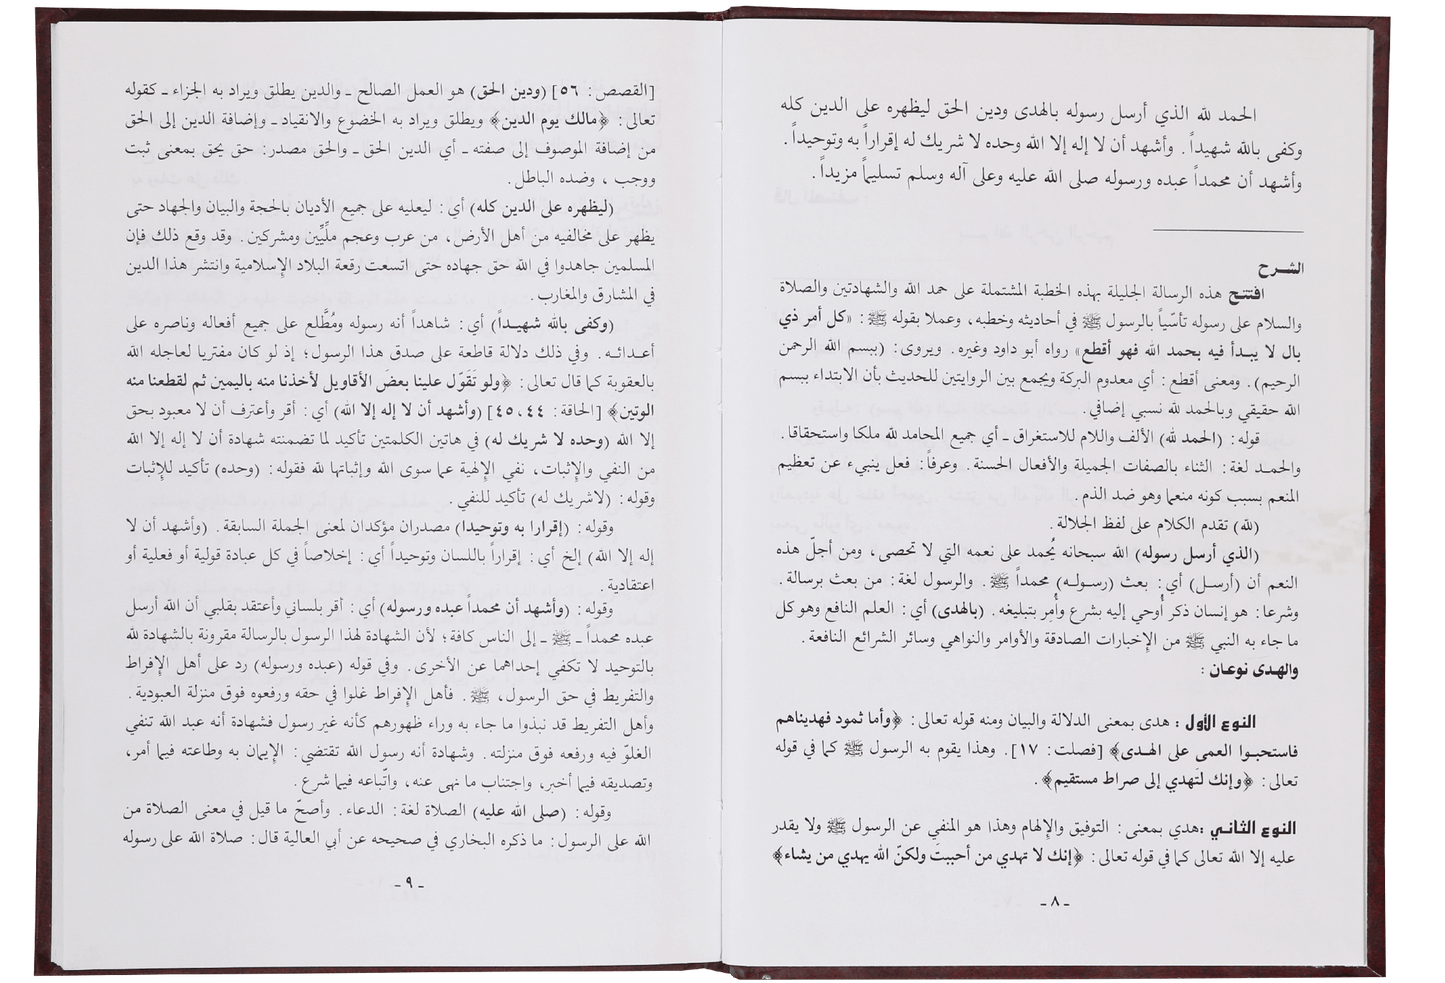 الحمد لله الذي أرسل رسوله بالهدى ودين الحق ليظهره على الدين كله
وكفى بالله شهيداً . وأشهد أن لا إله إلا الله وحده لا شريك له إقراراً به وتوحيداً .
وأشهد أن محمداً عبده ورسوله صلى الله عليه وعلى آله وسلم تسليماً مزيداً .
الشرح
افتتح هذه الرسالة الجليلة بهذه الخطبة المشتملة على حمد الله والشهادتين والصلاة
والسلام على رسوله تأسّياً بالرسول ﷺ في أحاديثه وخطبه، وعملا بقوله ﷺ : «كل أمر ذي
بال لا يبدأ فيه بحمد الله فهو أقطع» رواه أبو داود وغيره . ويروى : (ببسم الله الرحمن
الرحيم) . ومعنى أقطع : أي معدوم البركة ويجمع بين الروايتين للحديث بأن الابتداء ببسم
الله حقيقي وبالحمد لله نسبي إضافي .
قوله : (الحمد لله) الألف واللام للاستغراق ـ أي جميع المحامد لله ملكا واستحقاقا .
والحمد لغة : الثناء بالصفات الجميلة والأفعال الحسنة . وعرفاً : فعل ينبيء عن تعظيم
المنعم بسبب كونه منعما وهو ضد الذم .
(لله) تقدم الكلام على لفظ الجلالة .
(الذي أرسل رسوله) الله سبحانه يُحمد على نعمه التي لا تحصى، ومن أجلّ هذه
النعم أن (أرسل) أي : بعث (رسوله) محمداً ﷺ . والرسول لغة : من بعث برسالة .
وشرعا : هو إنسان ذكر أُوحي إليه بشرع وأُمِر بتبليغه . (بالهدى) أي : العلم النافع وهو كل
ما جاء به النبي ﷺ من الإخبارات الصادقة والأوامر والنواهي وسائر الشرائع النافعة .
والهدى نوعان :
النوع الأول : هدى بمعنى الدلالة والبيان ومنه قوله تعالى : ﴿وأما ثمود فهديناهم
فاستحبوا العمى على الهدى﴾ [فصلت : ١٧] . وهذا يقوم به الرسول ﷺ كما في قوله
تعالى : ﴿وإنك لتَهدي إلى صراط مستقيم﴾ .
النوع الثاني :هدي بمعنى : التوفيق والإلهام وهذا هو المنفي عن الرسول ﷺ ولا يقدر
عليه إلا الله تعالى كما في قوله تعالى : ﴿إنك لا تهدي من أحببتَ ولكنّ الله يهدي من يشاء﴾
ـ ٨ ـ
[القصص : ٥٦] (ودين الحق) هو العمل الصالح ـ والدين يطلق ويراد به الجزاء ـ كقوله
تعالى : ﴿مالك يوم الدين﴾ ويطلق ويراد به الخضوع والانقياد ـ وإضافة الدين إلى الحق
من إضافة الموصوف إلى صفته ـ أي الدين الحق ـ والحق مصدر : حق يحق بمعنى ثبت
ووجب ، وضده الباطل .
(ليظهره على الدين كله) أي : ليعليه على جميع الأديان بالحجة والبيان والجهاد حتى
يظهر على مخالفيه من أهل الأرض، من عرب وعجم ملّيِّين ومشركين . وقد وقع ذلك فإن
المسلمين جاهدوا في الله حق جهاده حتى اتسعت رقعة البلاد الإسلامية وانتشر هذا الدين
في المشارق والمغارب .
(وكفى بالله شهيداً) أي : شاهداً أنه رسوله ومُطَّلع على جميع أفعاله وناصره على
أعدائه . وفي ذلك دلالة قاطعة على صدق هذا الرسول؛ إذ لو كان مفتريا لعاجله الله
بالعقوبة كما قال تعالى : ﴿ولو تَقَوّل علينا بعضَ الأقاويل لأخذنا منه باليمين ثم لقطعنا منه
الوتين﴾ [الحاقة : ٤٤، ٤٥] (وأشهد أن لا إله إلا الله) أي : أقر وأعترف أن لا معبود بحق
إلا الله (وحده لا شريك له) في هاتين الكلمتين تأكيد لما تضمنته شهادة أن لا إله إلا الله
من النفي والإثبات، نفي الإلهية عما سوى الله وإثباتها لله فقوله : (وحده) تأكيد للإثبات
وقوله : (لاشريك له) تأكيد للنفي .
وقوله : (إقرارا به وتوحيدا) مصدران مؤكدان لمعنى الجملة السابقة . (وأشهد أن لا
إله إلا الله) إلخ أي : إقراراً باللسان وتوحيداً أي : إخلاصاً في كل عبادة قولية أو فعلية أو
اعتقادية .
وقوله : (وأشهد أن محمداً عبده ورسوله) أي : أقر بلساني وأعتقد بقلبي أن الله أرسل
عبده محمداً ـ ﷺ ـ إلى الناس كافة؛ لأن الشهادة لهذا الرسول بالرسالة مقرونة بالشهادة لله
بالتوحيد لا تكفي إحداهما عن الأخرى . وفي قوله (عبده ورسوله) رد على أهل الإفراط
والتفريط في حق الرسول، ﷺ . فأهل الإفراط غلوا في حقه ورفعوه فوق منزلة العبودية .
وأهل التفريط قد نبذوا ما جاء به وراء ظهورهم كأنه غير رسول فشهادة أنه عبد الله تنفي
الغلوّ فيه ورفعه فوق منزلته . وشهادة أنه رسول الله تقتضي : الإيمان به وطاعته فيما أمر،
وتصديقه فيما أخبر، واجتناب ما نهى عنه، واتّباعه فيما شرع .
وقوله : (صلى الله عليه) الصلاة لغة : الدعاء . وأصحّ ما قيل في معنى الصلاة من
الله على الرسول : ما ذكره البخاري في صحيحه عن أبي العالية قال : صلاة الله على رسوله
ـ ٩ ـ